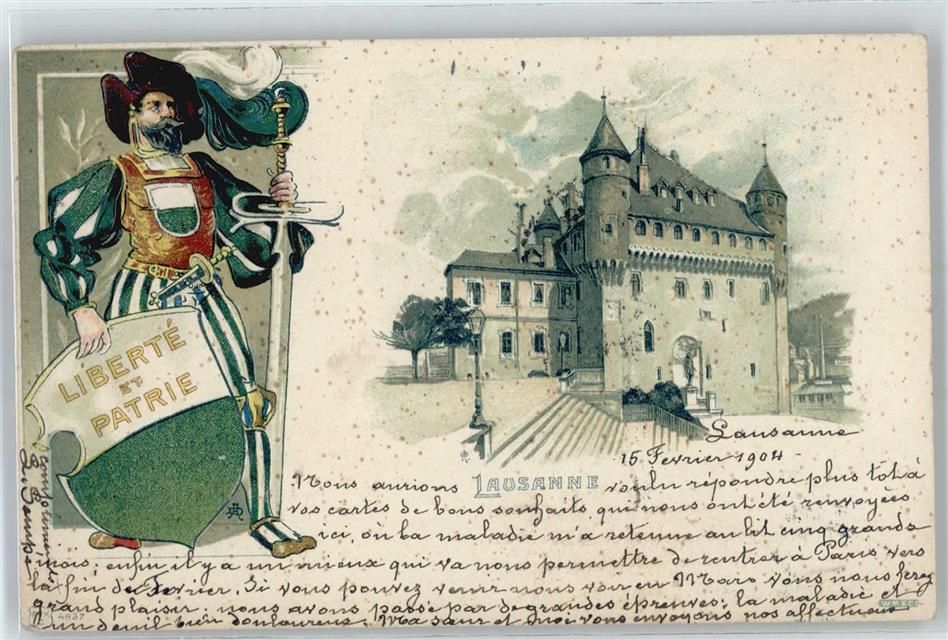 LIBERTÉ
ET
PATRIE
Lausanne
15 Fevrier 1904 -
Nous aurions LAUSANNE voulu répondre plus tot à
vos cartes de bons souhaits qui nous ont été renvoyées
ici, où la maladie m'a retenue au lit cinq grands
mois; enfin il y a un mieux qui va nous permettre de rentrer à Paris vers
la fin de Fevrier. Si vous pouvez venir nous voir en Mars vous nous ferez
grand plaisir. nous avons passé par de grandes épreuves; la maladie et
un deuil bien douloureux. Ma sœur et moi vous envoyons nos affectueux
4637